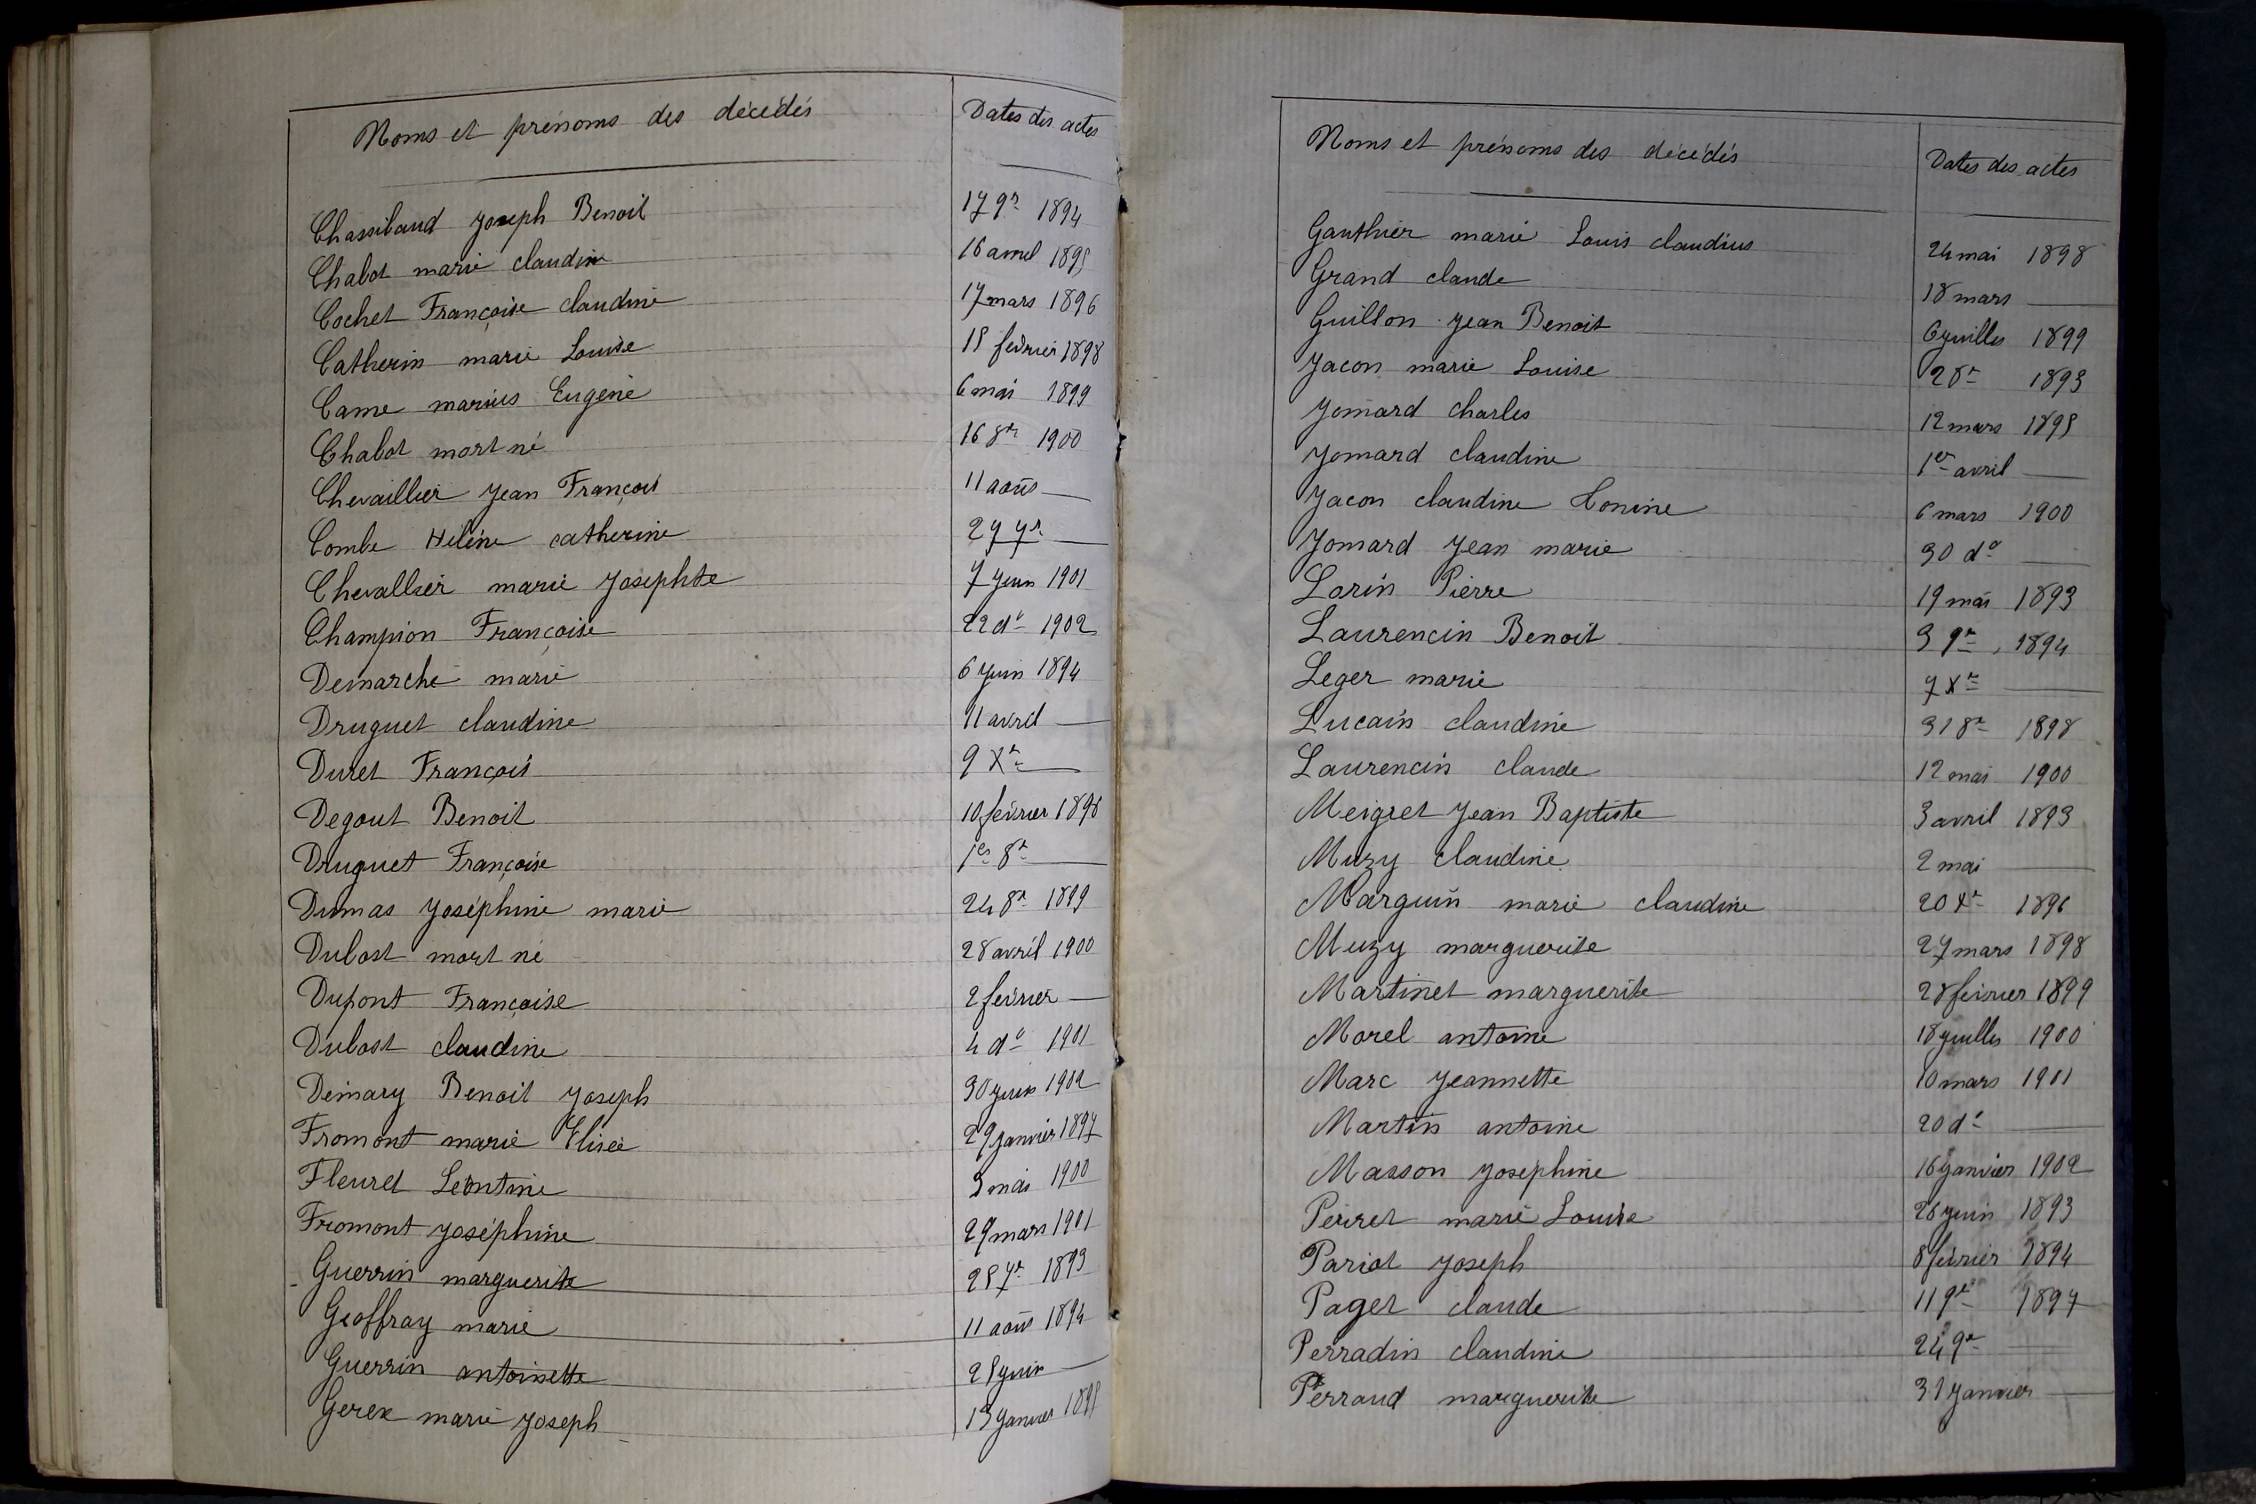 Noms et prénoms des décédés Dates des actes
Chassibaud Joseph Benoit 17 9re 1894
Chabot marie claudine 16 avril 1895
Cochet Françoise claudine 17 mars 1896
Catherin marie Louise 15 fevrier 1898
Came marius Eugène 6 mai 1899
Chabot mort né 16 8re 1900
Chevaillier Jean François 11 août —
Combe Hélène catherine 27 7re —
Chevallier marie Josephte 7 Juin 1901
Champion Françoise 22 do 1902
Demarché marie 6 Juin 1894
Druguet claudine 11 avril —
Duret François 9 Xre —
Degout Benoit 10 février 1898
Druguet Françoise 1er 8re —
Dumas Joséphine marie 24 8re 1899
Dubost mort né 28 avril 1900
Dupont Françoise 2 février —
Dubost claudine 4 do 1901
Demary Benoit Joseph 30 Juin 1902
Fromont marie Elisée 29 janvier 1897
Fleuret Léontine 3 mai 1900
Fromont Joséphine 29 mars 1901
Guerrin marguerite 25 7re 1893
Geoffray marie 11 août 1894
Guerrin antoinette 25 Juin —
Gerex marie Joseph 13 Janvier 1895
Noms et prénoms des décédés Dates des actes
Gauthier marie Louis claudius 24 mai 1898
Grand claude 18 mars —
Guillon Jean Benoit 6 Juillet 1899
Jacon marie Louise 2 8re 1893
Jomard charles 12 mars 1895
Jomard claudine 1er avril —
Jacon claudine Honine 6 mars 1900
Jomard Jean marie 30 do —
Lorin Pierre 19 mai 1893
Laurencin Benoit 3 9re 1894
Leger marie 7 Xre —
Lucain claudine 31 8re 1898
Laurencin claude 12 mai 1900
Meigret Jean Baptiste 3 avril 1893
Muzy claudine 2 mai —
Marguin marie claudine 20 Xre 1896
Muzy marguerite 27 mars 1898
Martinet marguerite 28 février 1899
Morel antoine 18 Juillet 1900
Marc Jeannette 10 mars 1901
Martin antoine 20 do —
Masson Josephine 16 Janvier 1902
Perret marie Louise 26 Juin 1893
Pariot Joseph 8 février 1894
Paget claude 11 9re 1897
Perradin claudine 24 9re —
Perraud marguerite 31 Janvier —